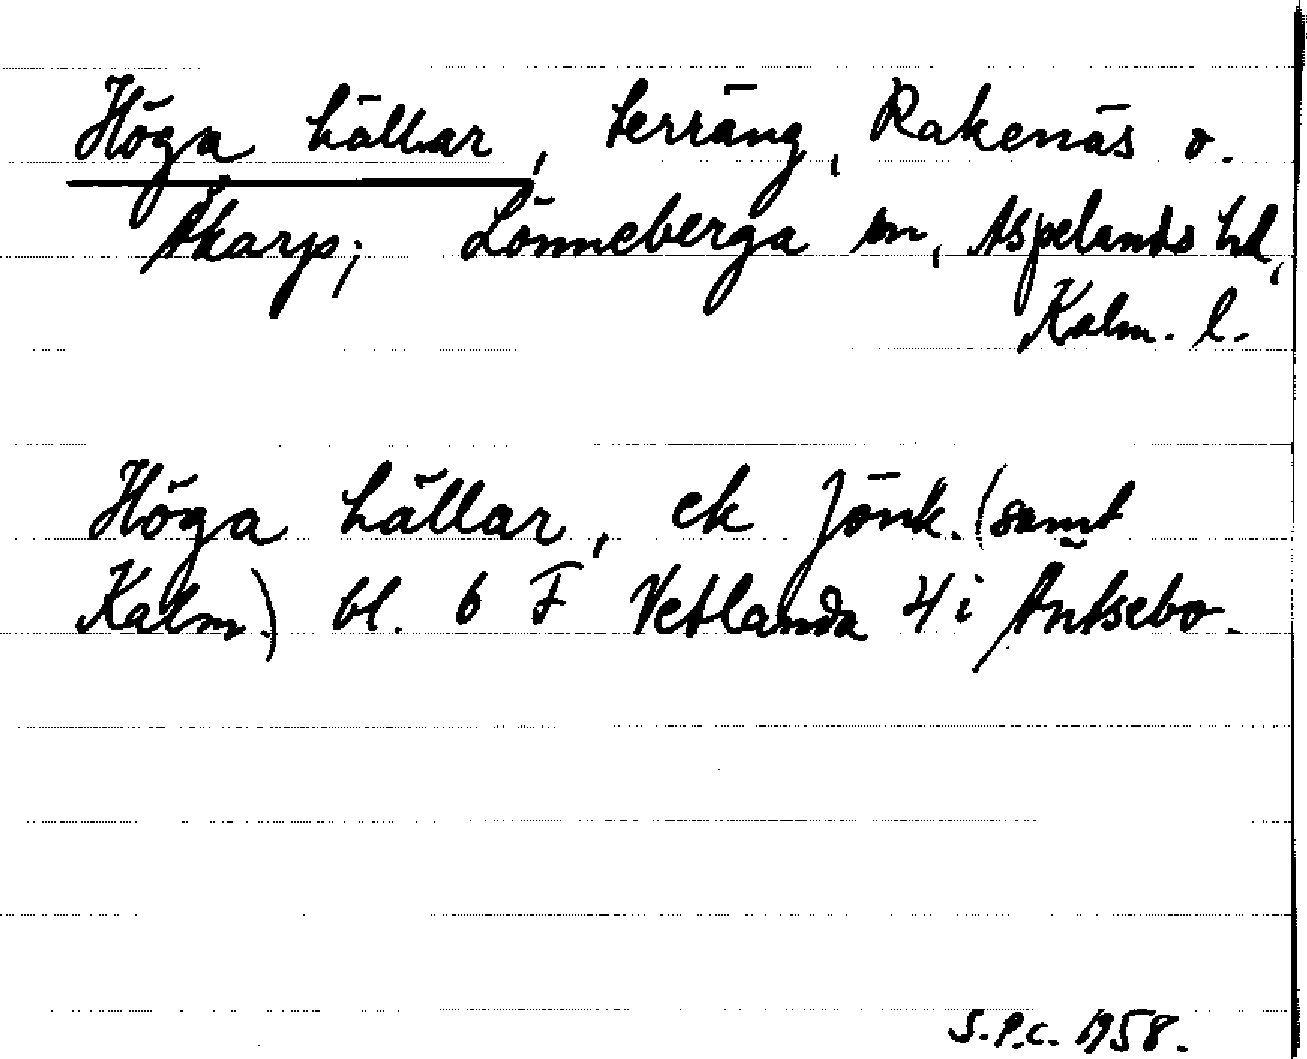 Höga hällar, terräng, Rakenäs o.
Åkarp; Lönneberga sn, Aspelands hd,
Kalm. l.
Höga hällar, ek Jönk. (samt
Kalm.) bl. 6 F Vetlanda 4 i Äntsebo.
S.P.C. 1958.